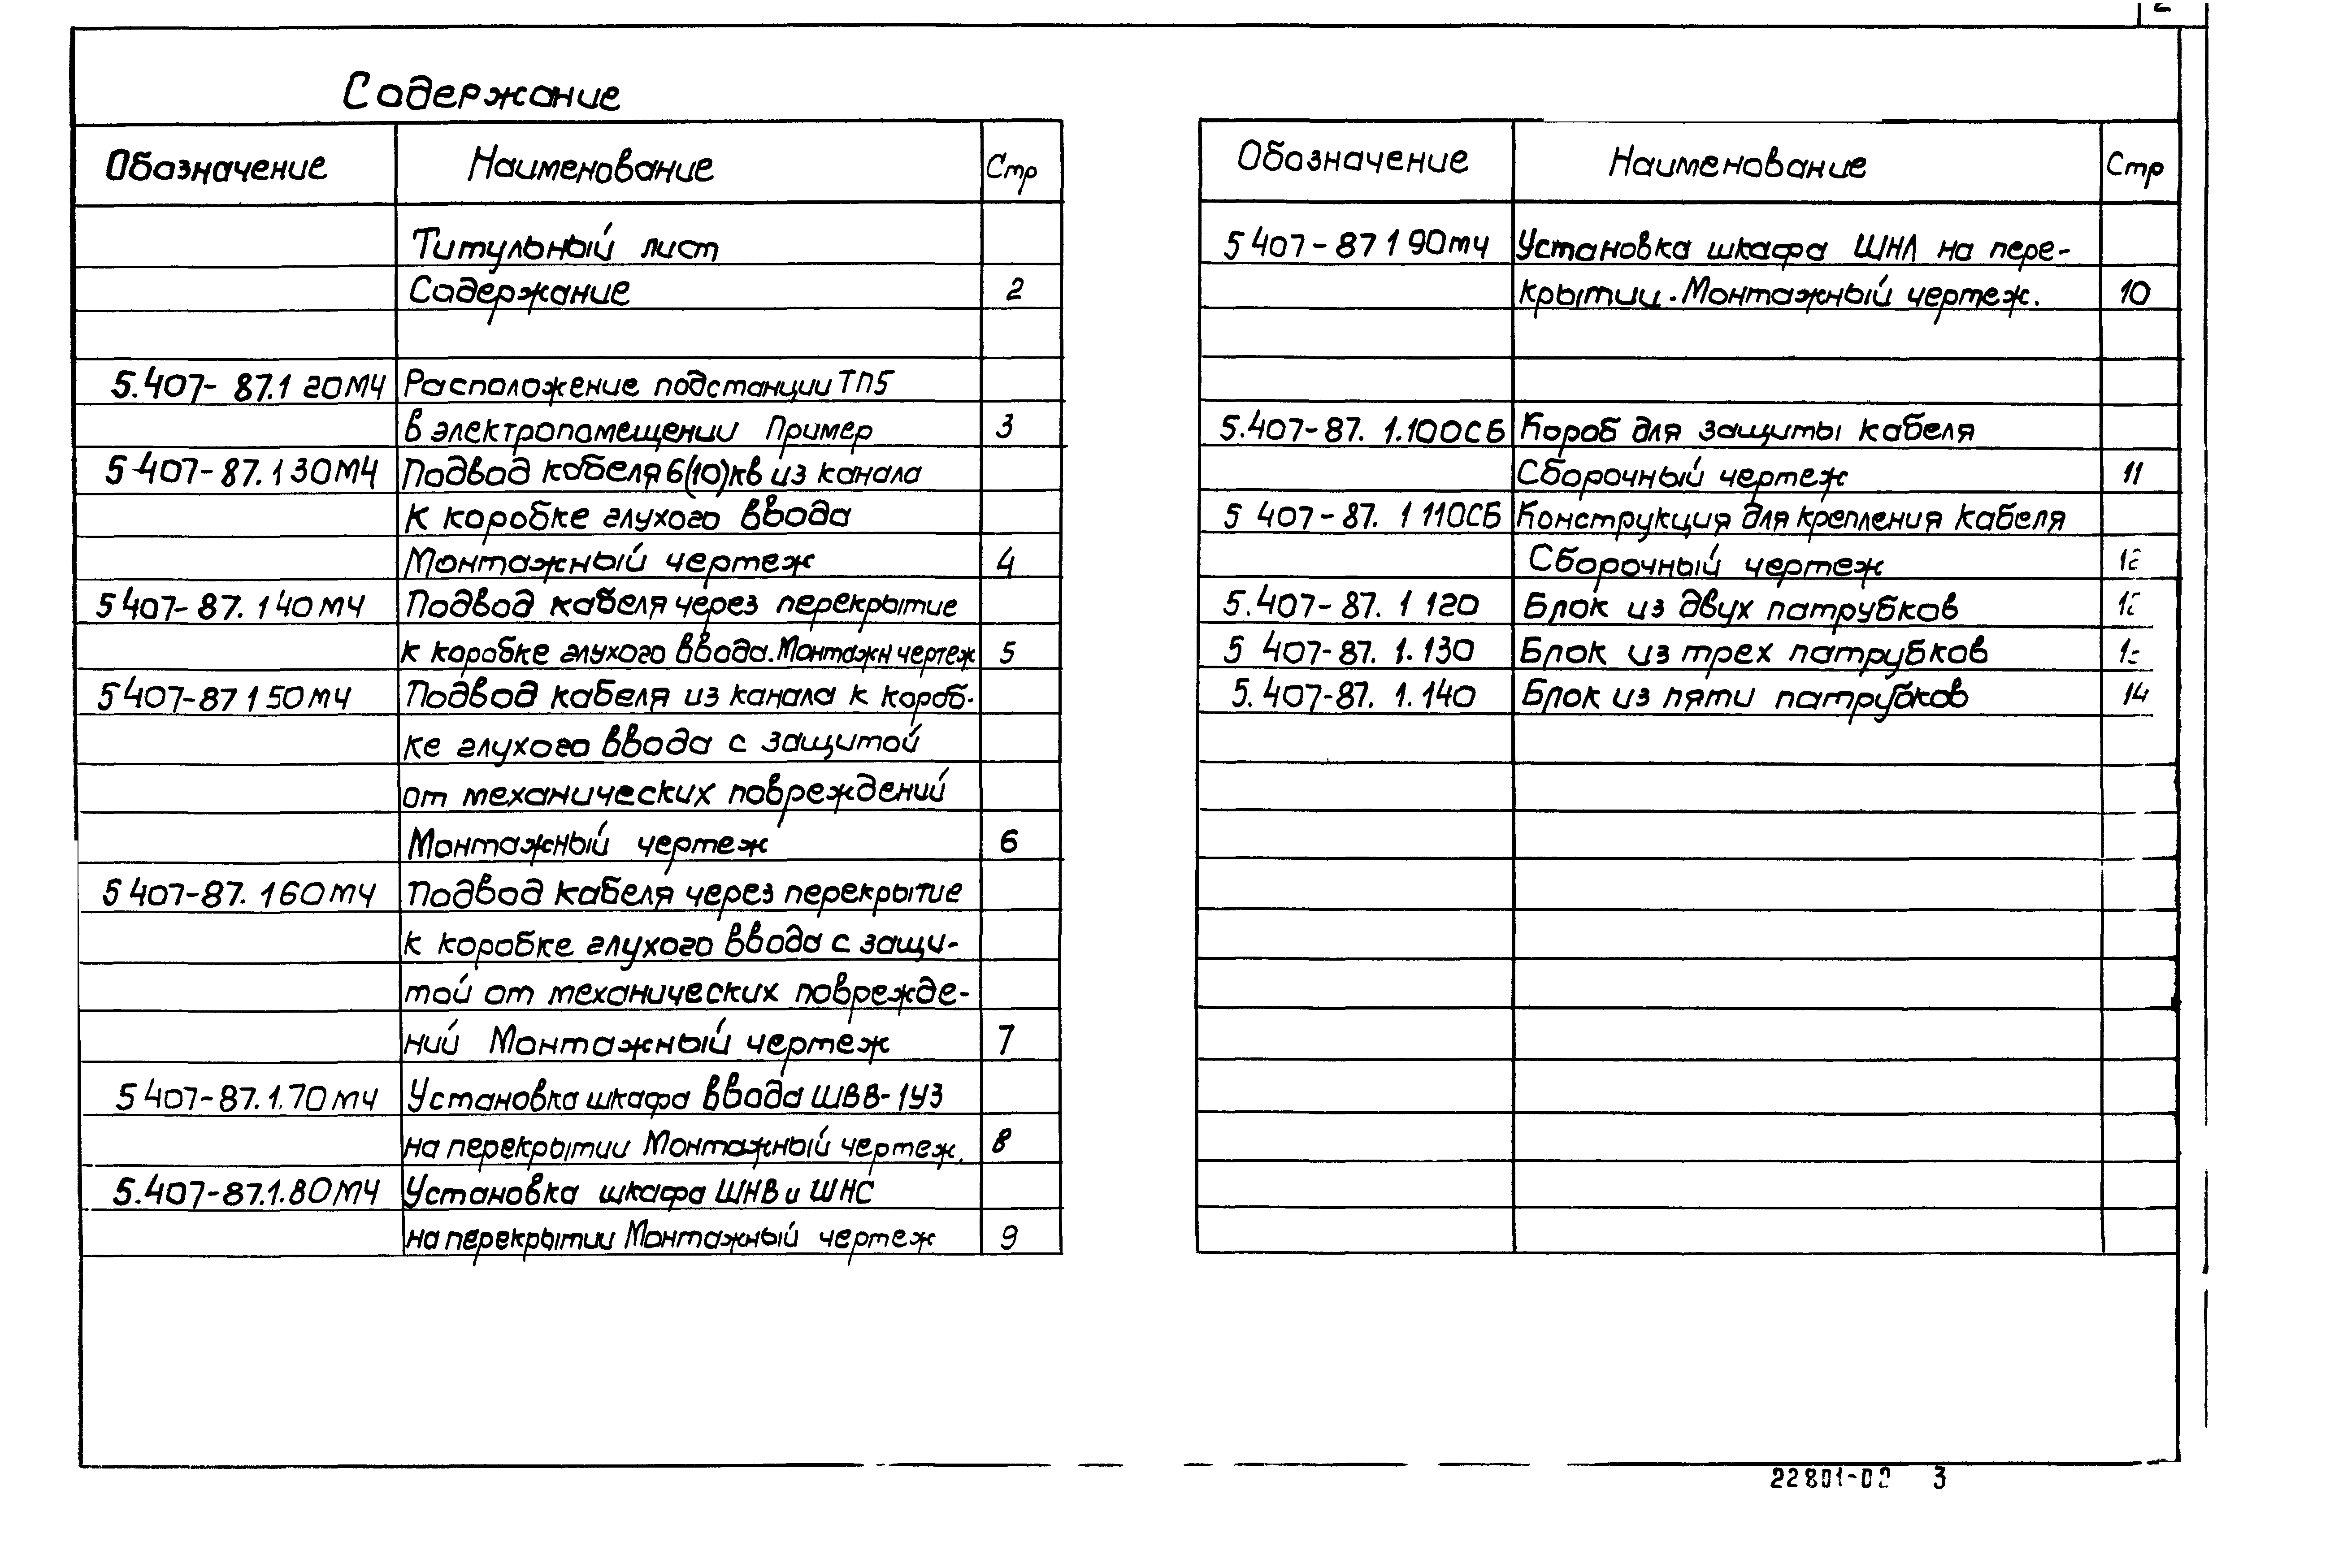 Содержание
Обозначение Наименование Стр
Титульный лист
Содержание 2
5.407-87.1 20МЧ Расположение подстанции ТП5
в электропомещении Пример 3
5 407-87.1 30МЧ Подвод кабеля 6(10)кв из канала
к коробке глухого ввода
Монтажный чертеж 4
5 407-87. 1 40мч Подвод кабеля через перекрытие
к коробке глухого ввода. Монтажн чертеж 5
5 407-87 1 50мч Подвод кабеля из канала к короб-
ке глухого ввода с защитой
от механических повреждений
Монтажный чертеж 6
5 407-87. 1 60мч Подвод кабеля через перекрытие
к коробке глухого ввода с защи-
той от механических поврежде-
ний Монтажный чертеж 7
5 407-87.1.70мч Установка шкафа ввода ШВВ-1У3
на перекрытии Монтажный чертеж. 8
5.407-87.1.80мч Установка шкафа ШНВ и ШНС
на перекрытии Монтажный чертеж 9
Обозначение Наименование Стр
5 407-87 1 90мч Установка шкафа ШНЛ на пере-
крытии. Монтажный чертеж. 10
5.407-87. 1.100СБ Короб для защиты кабеля
Сборочный чертеж 11
5 407-87. 1 110СБ Конструкция для крепления кабеля
Сборочный чертеж
5.407-87. 1 120 Блок из двух патрубков
5 407-87. 1.130 Блок из трех патрубков
5. 407-87. 1.140 Блок из пяти патрубков 14
22801-02 3